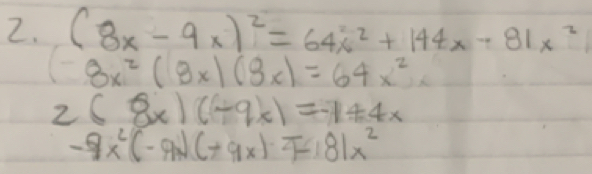 2. (8x - 9x)² = 64x² + 144x - 81x²
8x² (8x)(8x) = 64x²
2(8x)(-9x) = -144x
-9x² (-9x)(-9x) = -81x²